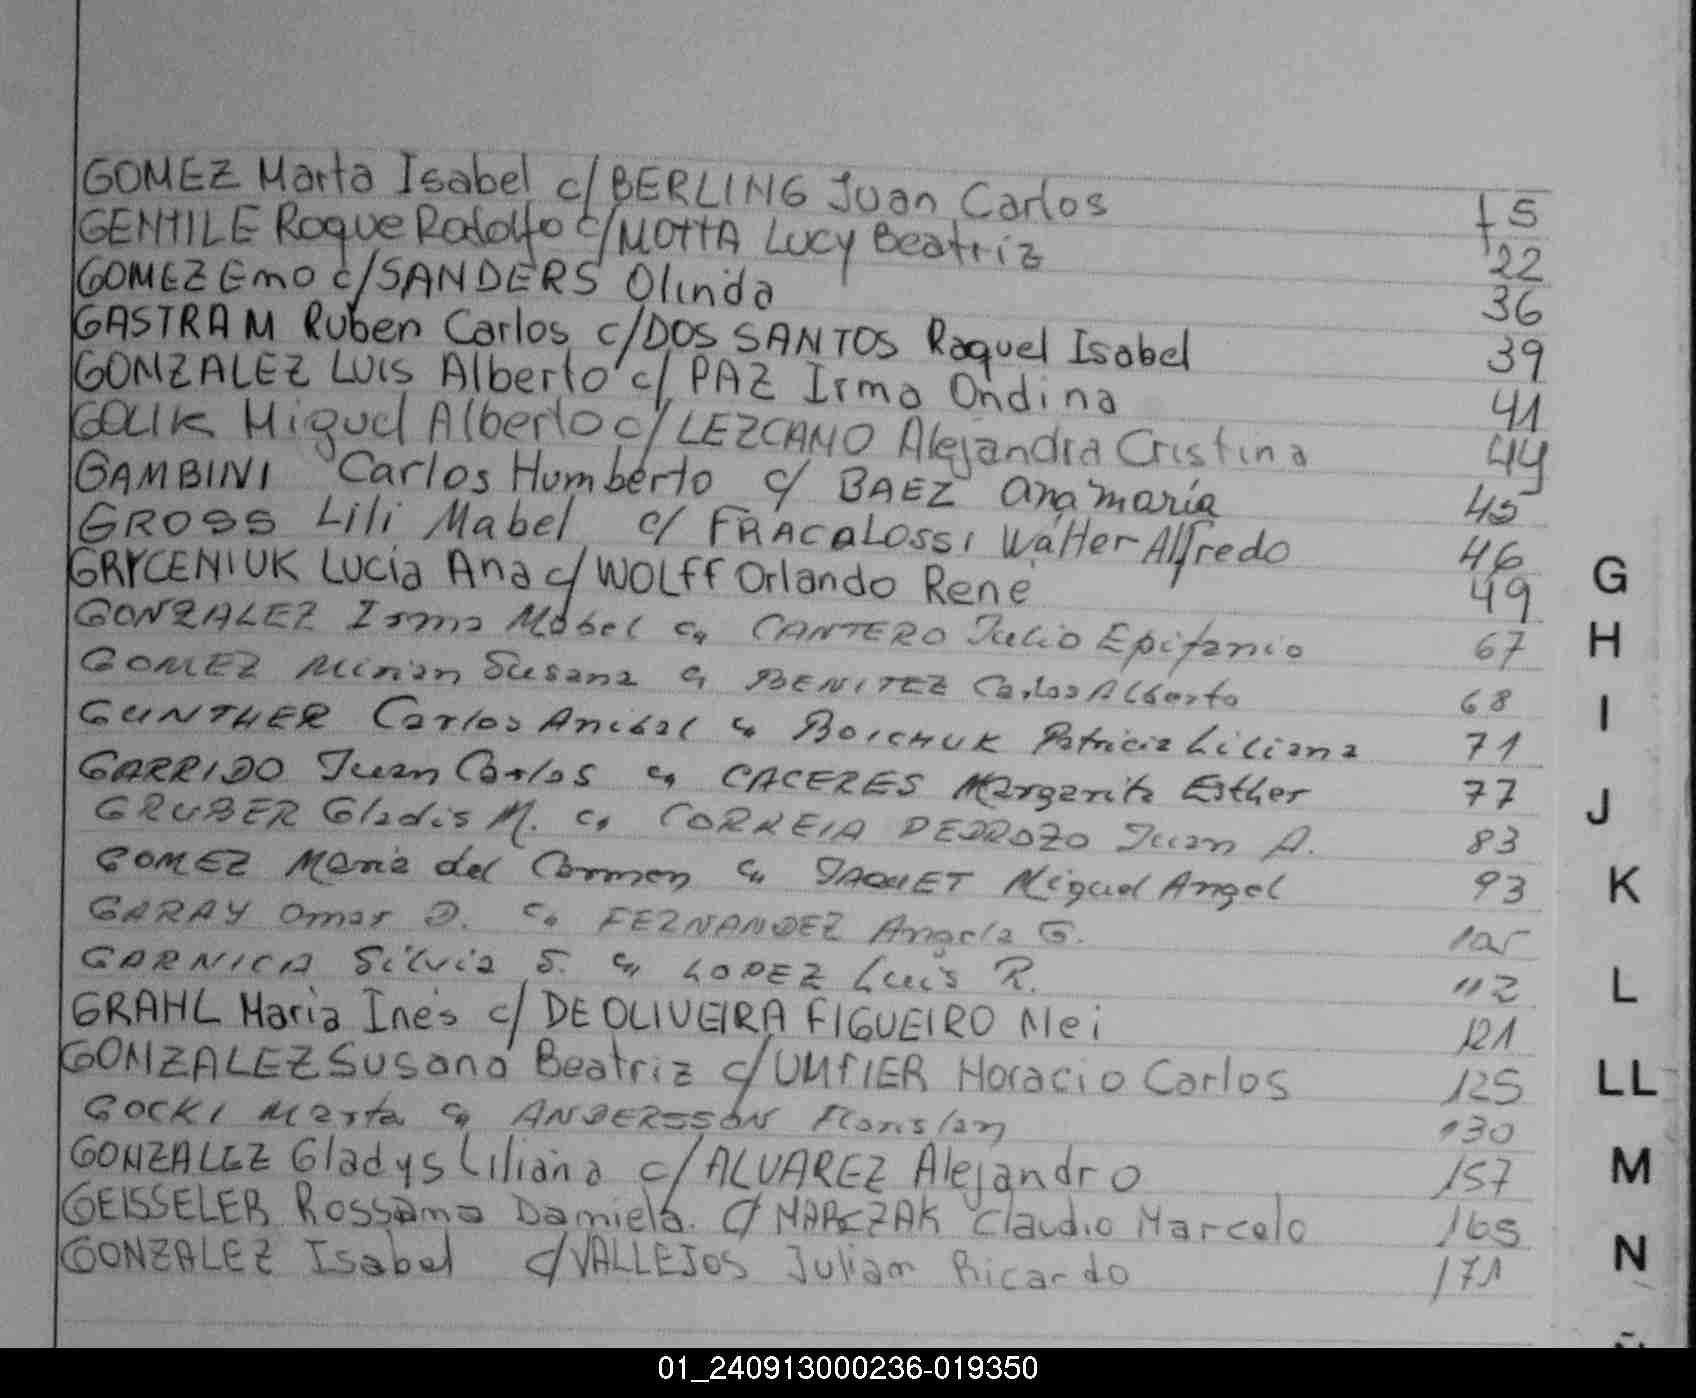 GOMEZ Marta Isabel c/BERLING Juan Carlos 5
GENTILE Roque Rodolfo c/MOTTA Lucy Beatriz 22
GOMEZ Emo c/SANDERS Olinda 36
GASTRAM Ruben Carlos c/DOS SANTOS Raquel Isabel 39
GONZALEZ Luis Alberto c/ PAZ Irma Ondina 41
GOLIK Miguel Alberto c/ LEZCANO Alejandra Cristina 44
GAMBINI Carlos Humberto c/ BAEZ Ana María 45
GROSS Lili Mabel c/ FRACALOSSI Walter Alfredo 46
GRYCENIUK Lucia Ana c/ WOLFF Orlando René 49
GONZALEZ Irma Mabel c/ CANTERO Julio Epifanio 67
GOMEZ Mirian Susana c/ BENITEZ Carlos Alberto 68
GUNTHER Carlos Anibal c/ BOICHUK Patricia Liliana 71
GARRIDO Juan Carlos c/ CACERES Margarita Esther 77
GRUBER Gladis M. c/ CORREIA PEDROZO Juan A. 83
GOMEZ Maria del Carmen c/ JAQUET Miguel Angel 93
GARAY Omar D. c/ FERNANDEZ Angela G. 105
GARNICA Silvia S. c/ LOPEZ Luis R. 112
GRAHL Maria Inés c/ DE OLIVEIRA FIGUEIRO Nei 121
GONZALEZ Susana Beatriz c/ Horacio Carlos 125
GOCKI Marta c/ ANDERSSON Florislan 130
GONZALEZ Gladys Liliana c/ ALVAREZ Alejandro 157
GEISSELER Rossana Daniela. c/ MARCZAK Claudio Marcelo 165
GONZALEZ Isabel c/VALLEJOS Julian Ricardo 171
G
H
I
J
K
L
LL
M
N
01_240913000236-019350